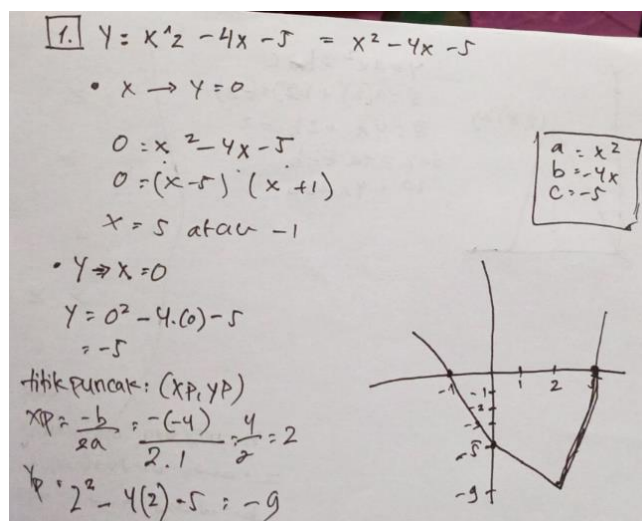 1. Y = x^2 - 4x - 5 = x² - 4x - 5
• x → y = 0
0 = x² - 4x - 5
0 = (x - 5) (x + 1)
x = 5 atau -1
a = x²
b = -4x
c = -5
• Y → x = 0
Y = 0² - 4.(0) - 5
= -5
titik puncak : (xp, yp)
xp = -b/2a = -(-4)/2.1 = 4/2 = 2
yp = 2² - 4(2) - 5 = -9
-1 1 2 5
-1
-2
-3
-5
-9